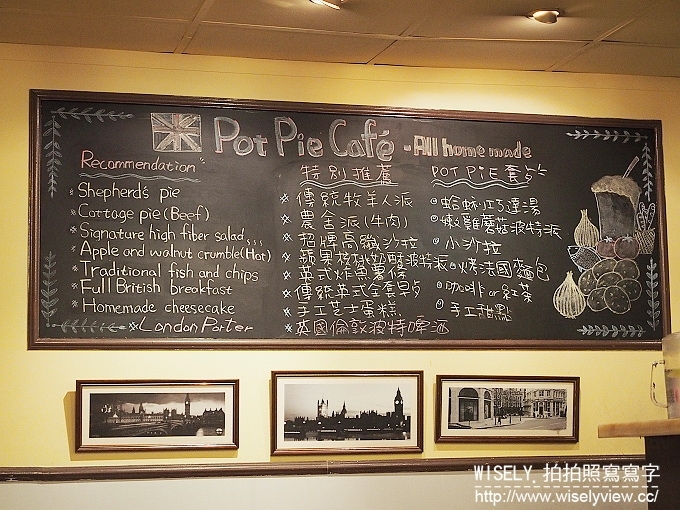 Pot Pie Café - All home made
Recommendation
※ Shepherd's pie
※ Cottage pie (Beef)
※ Signature high fiber salad
※ Apple and walnut crumble (Hot)
※ Traditional fish and chips
※ Full British breakfast
※ Homemade cheesecake
※ London Porter
特別推薦
※ 傳統牧羊人派
※ 農舍派(牛肉)
※ 招牌高纖沙拉
※ 蘋果核桃奶酥波特派
※ 英式炸魚薯條
※ 傳統英式全套早点
※ 手工芝士蛋糕
※ 英國倫敦波特啤酒
POT PIE套歺
蛤蜊巧達湯
嫩雞蘑菇波特派
小沙拉
烤法國麵包
咖啡 or 紅茶
手工甜點
WISELY 拍拍照寫寫字
http://www.wiselyview.cc/